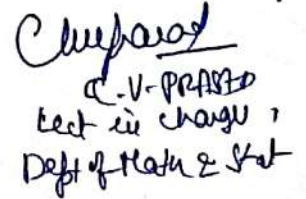 C.V. PRASAD
Lect in charge,
Dept of Math & Stat